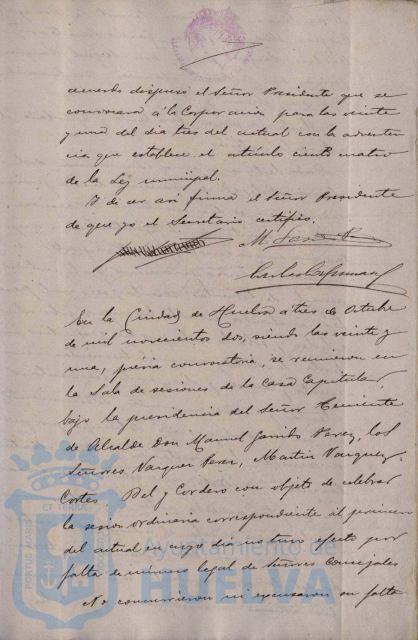 acuerdo dispuso el Señor Presidente que se
convocara á la Corporacion para las veinte
y una del dia tres del actual con la adverten
cia que establece el artículo ciento cuatro
de la Ley municipal.
Y de ser así firma el Señor Presidente
de que yo el Secretario certifico.
M.
En la Ciudad de Huelva á tres de Octubre
de mil novecientos dos, siendo las veinte y
una, prévia convocatoria, se reunieron en
la Sala de sesiones de la Casa Capitular,
bajo la presidencia del Señor Teniente
de Alcalde Don Manuel Garrido Perez, los
Señores Vazquez Perez, Martin Vazquez,
Cortes, Bel y Cordero con objeto de celebrar
la sesion ordinaria correspondiente al primero
del actual en cuyo dia no tuvo efecto por
falta de número legal de Señores Concejales
No concurrieron ni escusaron su falta
Ayuntamiento de
HUELVA
PORTUS MARIS
ET TERRAE